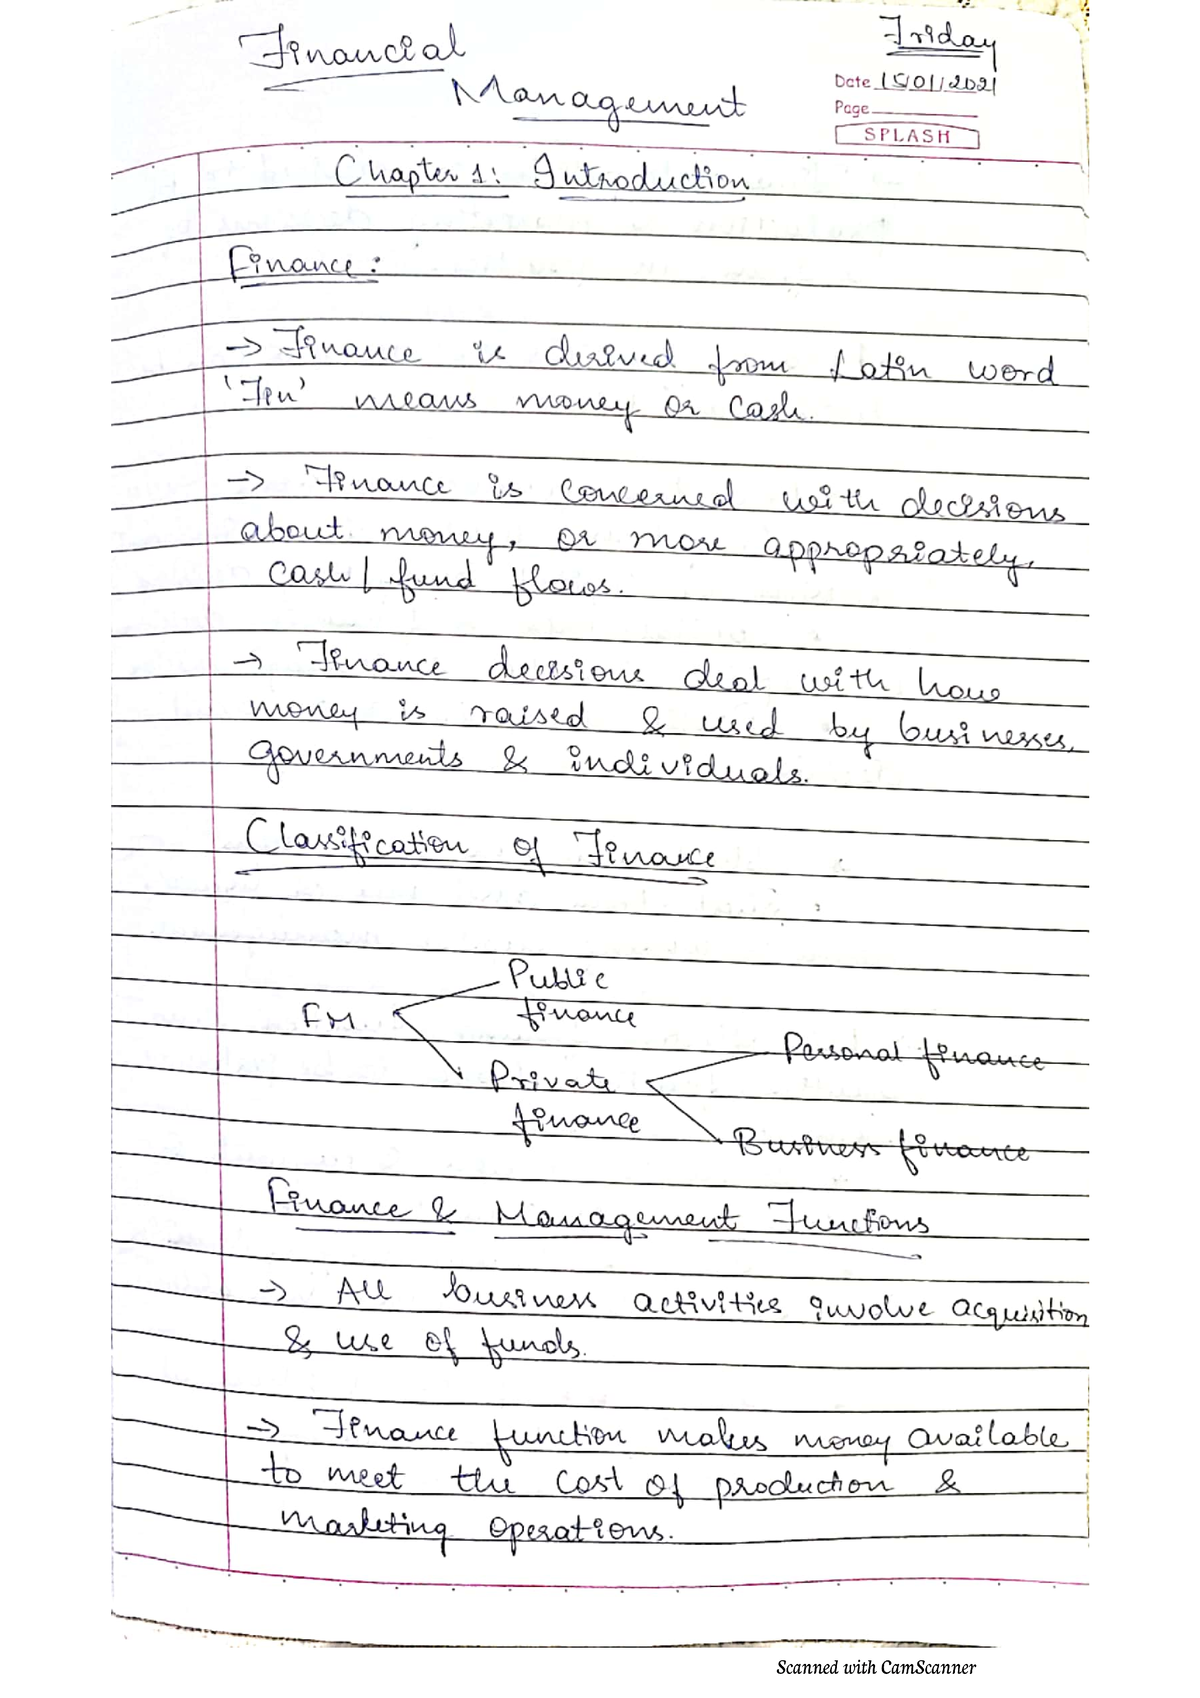 Financial
Management
Friday
Date 15/01/2021
Page
SPLASH
Chapter 1: Introduction
Finance:
→ Finance is derived from Latin word
'Fin' means money or cash.
→ Finance is concerned with decisions
about money, or more appropriately,
cash / fund flows.
→ Finance decisions deal with how
money is raised & used by businesses,
governments & individuals.
Classification of Finance
Public
FM
finance
Personal finance
Private
finance
Business finance
Finance & Management Functions
→ All business activities involve acquisition
& use of funds.
→ Finance function makes money available
to meet the cost of production &
marketing operations.
Scanned with CamScanner